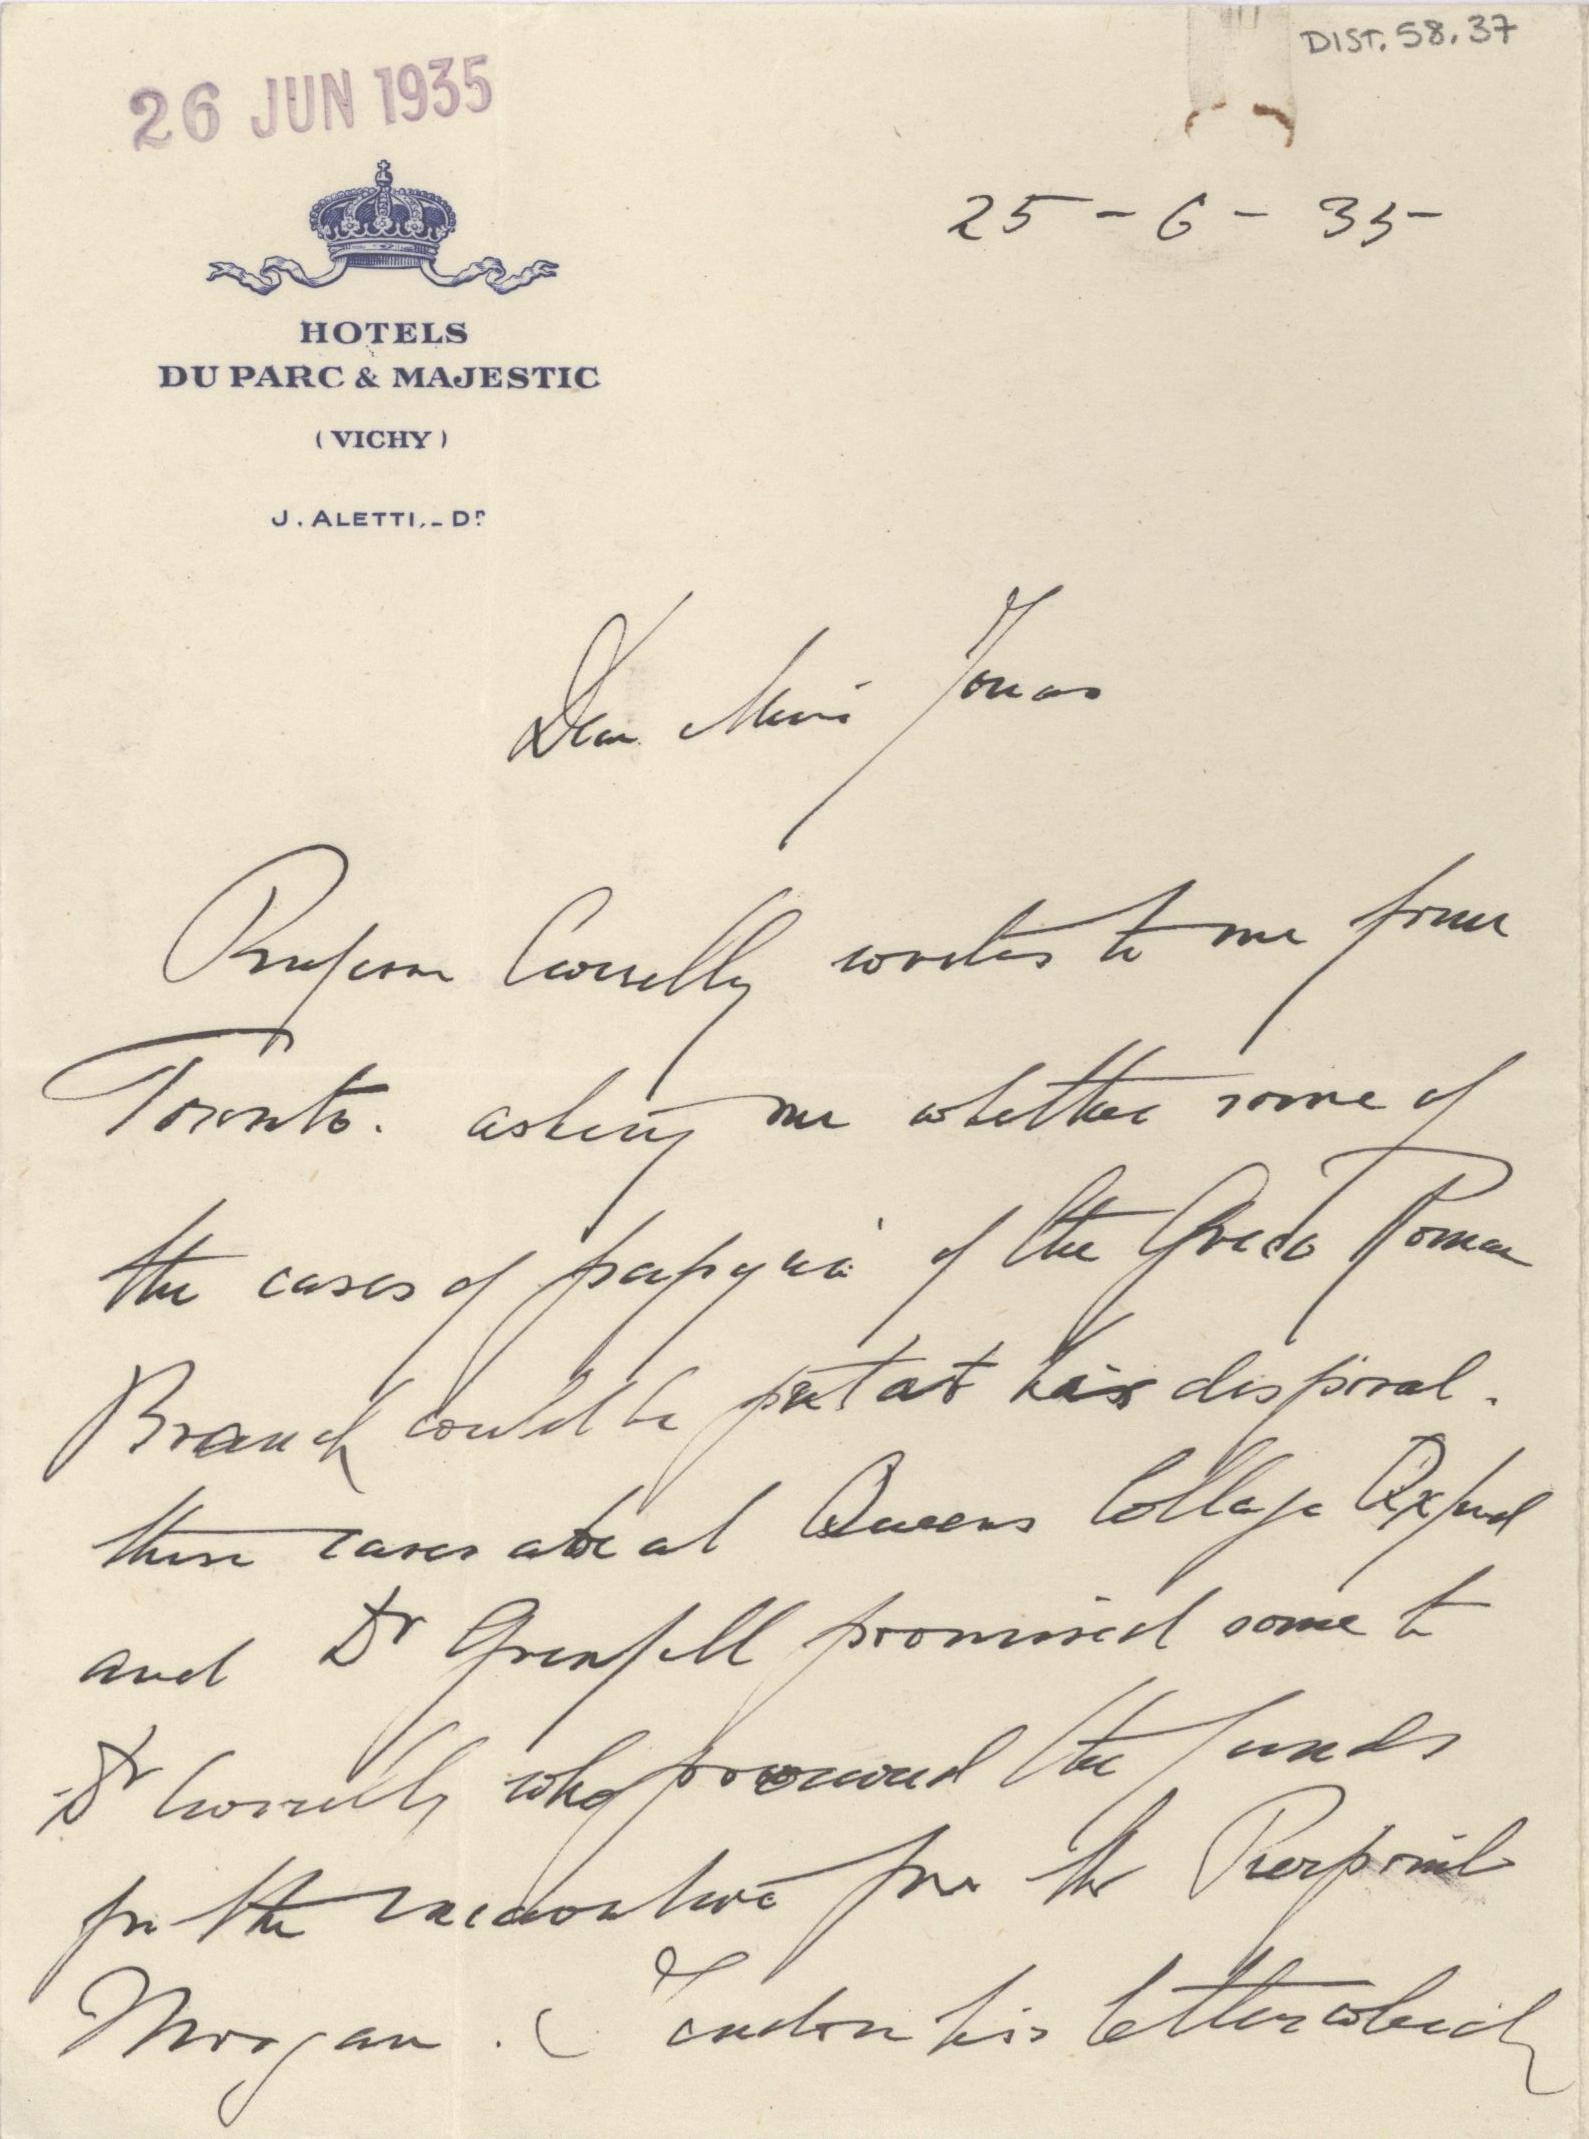 DIST. 58. 37
26 JUN 1935
25 - 6 - 35
HOTELS
DU PARC & MAJESTIC
( VICHY )
J. ALETTI,_ Dr
Dear Miss Jonas
Professor Currelly writes to me from
Toronto. asking me whether some of
the cases of papyri of the Graeco Roman
Branch could be put at his disposal.
These cases are at Queens College Oxford
and Dr Grenfell promised some to
Dr Currelly who procured the funds
for the excavations from the Pierpoint
Morgan. ( I enclose his letter which